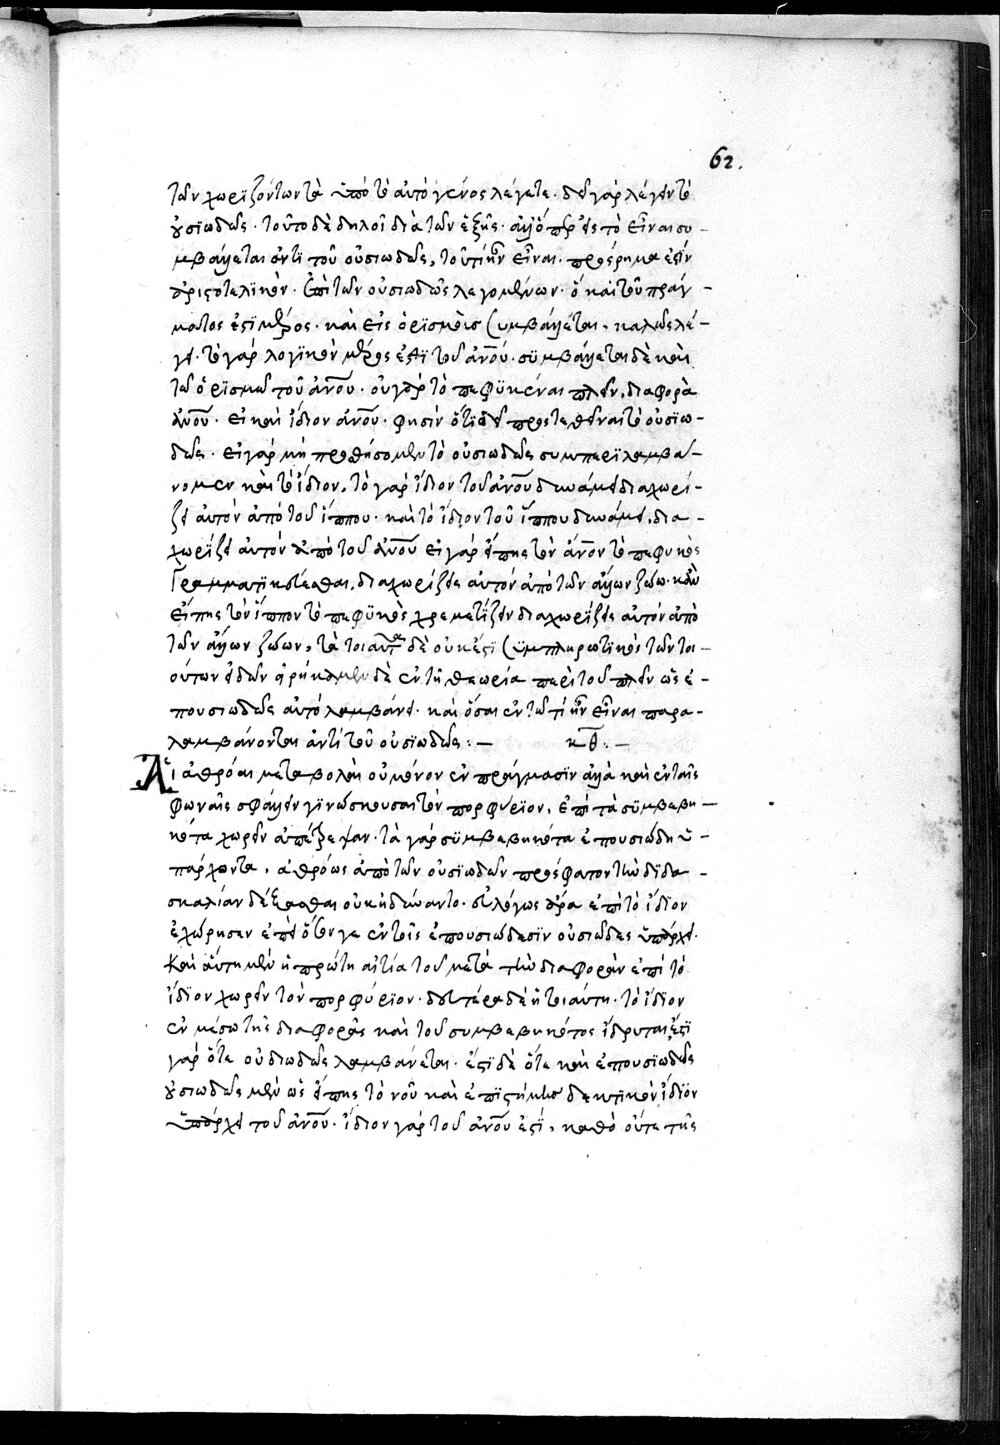 62.
τῶν χωριζόντων τὰ ὑπὸ τὸ αὐτὸ γένος λέγεται. δεῖ γὰρ λέγειν τὸ
οὐσιωδῶς. τοῦτο δὲ δηλοῖ διὰ τῶν ἑξῆς. ἀλλ' ὅπερ εἰς τὸ εἶναι συ-
μβάλλεται ἀντὶ τοῦ οὐσιωδῶς, τοῦ τί ἦν εἶναι. πρόσρημά ἐστιν
ἀριστοτελικὸν. ἐπὶ τῶν οὐσιωδῶς λεγομένων. ὃ καὶ τοῦ πράγ-
ματος ἐστὶ μέρος. καὶ εἰς ὁρισμὸν συμβάλλεται. καλῶς λέ-
γει. τὸ γὰρ λογικὸν μέρος ἐστὶ τοῦ ἀνου. συμβάλλεται δὲ καὶ
τῷ ὁρισμῷ τοῦ ἀνου. οὐ γὰρ τὸ πεφυκέναι πλεῖν, διαφορὰ
ἀνου. εἰ καὶ ἴδιον ἀνου. φησὶν ὅτι δεῖ προστεθῆναι τὸ οὐσιω-
δῶς. εἰ γὰρ μὴ προσθήσομεν τὸ οὐσιωδῶς συμπεριλαμβά-
νομεν καὶ τὸ ἴδιον. τὸ γὰρ ἴδιον τοῦ ἀνου δυνάμει διαχωρί-
ζει αὐτὸν ἀπὸ τοῦ ἵππου. καὶ τὸ ἴδιον τοῦ ἵππου δυνάμει, δια-
χωρίζει αὐτὸν ἀπὸ τοῦ ἀνου εἰ γὰρ εἴπῃς τὸν ἀνον τὸ πεφυκὸς
γραμματικεύεσθαι, διαχωρίζεις αὐτὸν ἀπὸ τῶν ἄλλων ζώων. κἂν
εἴπῃς τὸν ἵππον τὸ πεφυκὸς χρεμετίζειν διαχωρίζεις αὐτὸν ἀπὸ
τῶν ἄλλων ζώων, τὰ τοιαῦτα δὲ οὐκ ἔστι συμπληρωτικὸς τῶν τοι-
ούτων εἰδῶν εἰρήκαμεν δὲ ἐν τῇ θεωρίᾳ περὶ τοῦ πλεῖν ὡς ἐ-
πουσιωδῶς αὐτὸ λαμβάνει. καὶ ὅσαι ἐν τῷ τί ἦν εἶναι παρα-
λαμβάνονται ἀντὶ τοῦ οὐσιωδῶς:— κθ:—
Αἱ ἀθρόαι μεταβολαὶ οὐ μόνον ἐν πράγμασιν ἀλλὰ καὶ ἐν ταῖς
φωναῖς σφάλλειν γινώσκουσαι τὸν πορφύριον, ἐπὶ τὰ συμβεβη-
κότα χωρεῖν ἀπέτρεψαν. τὰ γὰρ συμβεβηκότα ἐπουσιώδη ὑ-
πάρχοντα, ἀθρόως ἀπὸ τῶν οὐσιωδῶν πρόσφατον τὴν διδα-
σκαλίαν δέξασθαι οὐκ ἠδύναντο. εὐλόγως ἄρα ἐπὶ τὸ ἴδιον
ἐχώρησεν ἐπεὶ ὅτι γε ἐν τοῖς ἐπουσιώδεσιν οὐσιῶδες ὑπάρχει.
καὶ αὕτη μὲν ἡ πρώτη αἰτία τοῦ μετὰ τὴν διαφορὰν ἐπὶ τὸ
ἴδιον χωρεῖν τὸν πορφύριον. δευτέρα δὲ ἡ τοιαύτη. τὸ ἴδιον
ἐν μέσῳ τῆς διαφορᾶς καὶ τοῦ συμβεβηκότος ἵδρυται ἔστι
γὰρ ὅτε οὐσιωδῶς λαμβάνεται. ἔστι δὲ ὅτε καὶ ἐπουσιωδῶς
οὐσιωδῶς μὲν ὡς εἴπῃς τὸ νοῦ καὶ ἐπιστήμης δεκτικὸν ἴδιον
ὑπάρχει τοῦ ἀνου. ἴδιον γὰρ τοῦ ἀνου ἐστὶ, καθὸ οὔτε τῆς